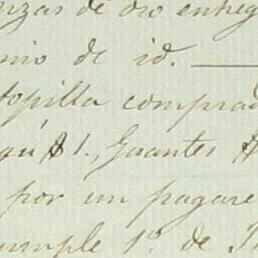 nzas de oro entreg
nio de id. —
topilla comprad
qui $ 1., Guantes $
por un pagare
umple 1º. de